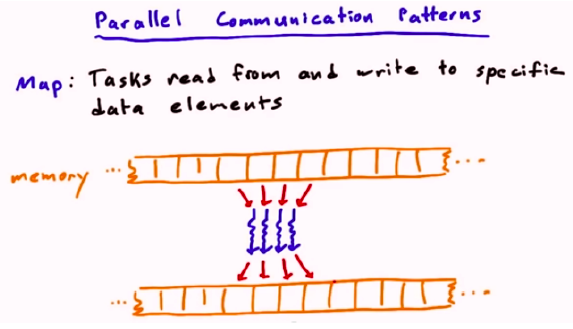 Parallel Communication Patterns
Map: Tasks read from and write to specific
data elements
memory